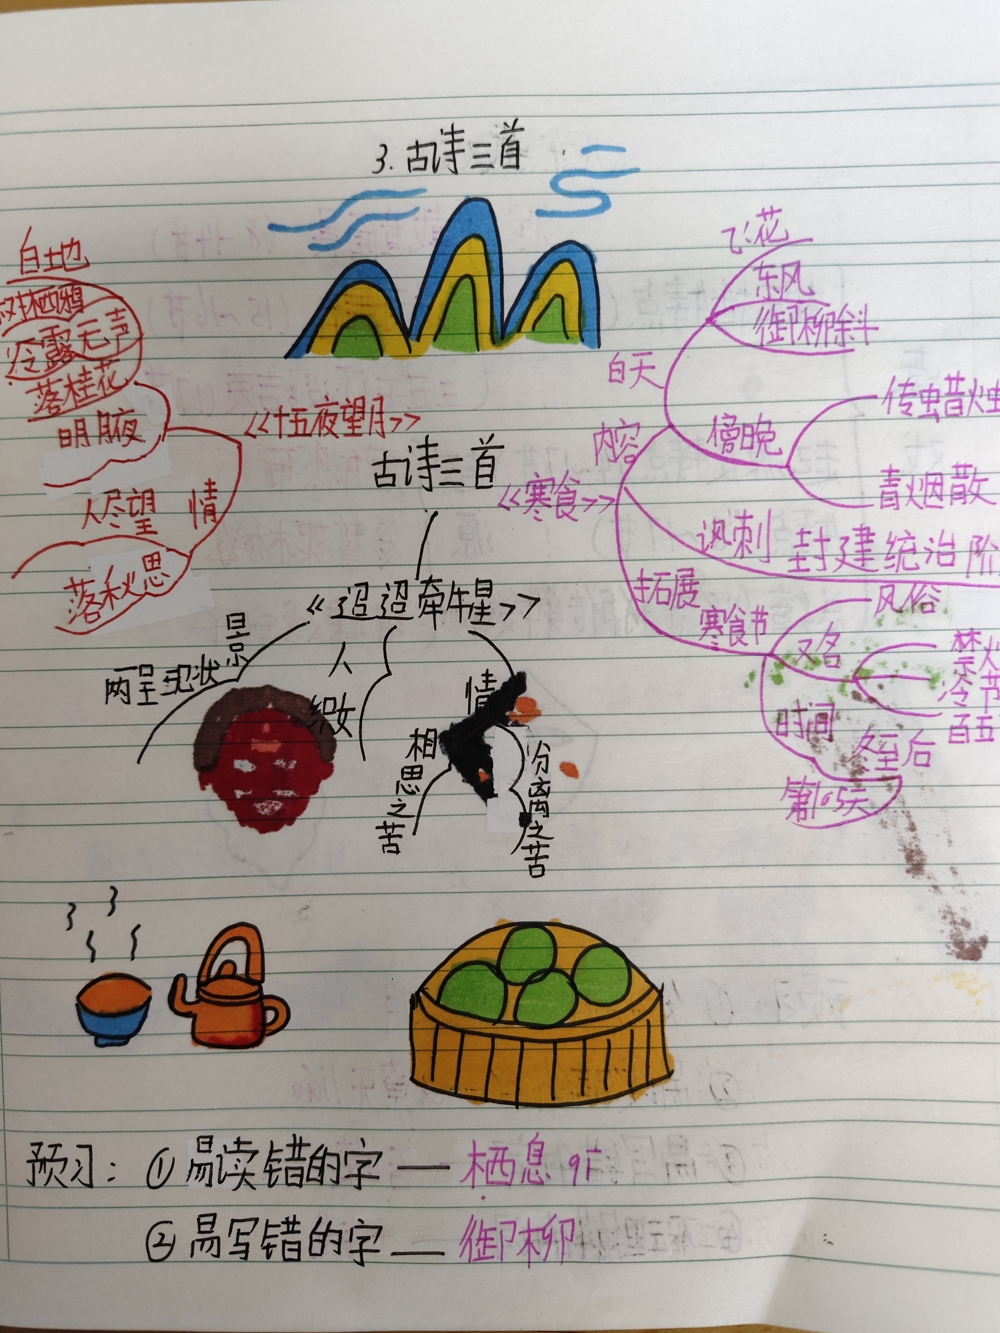 3.古诗三首
白地
树栖鸦
冷露无声
落桂花
明月夜
人尽望
情
落秋思
《十五夜望月》
古诗三首
《寒食》
内容
白天
飞花
东风
御柳斜
傍晚
传蜡烛
青烟散
讽刺
封建统治阶
拓展
寒食节
风俗
又名
禁火
冷节
百五
时间
冬至后
第105天
《迢迢牵牛星》
景
两呈现状
人
织女
情
相思之苦
分离之苦
预习：①易读错的字——栖息 qī
②易写错的字——御柳